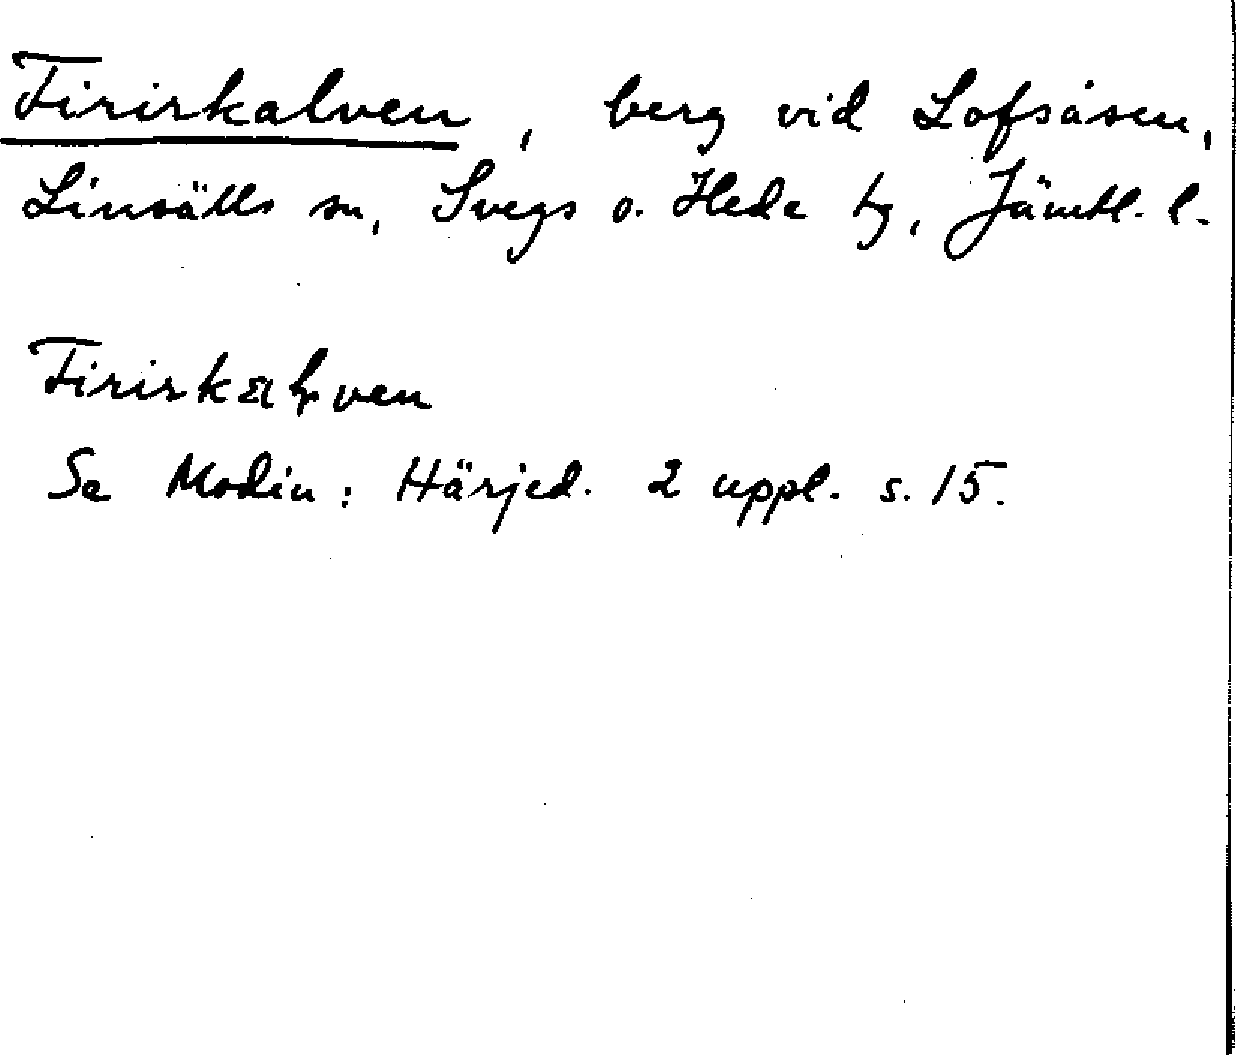 Firirkalven, berg vid Lofsåsen,
Linsälls sn, Svegs o. Hede tg, Jämtl. l.
Se Modin: Härjed. 2 uppl. s. 15.